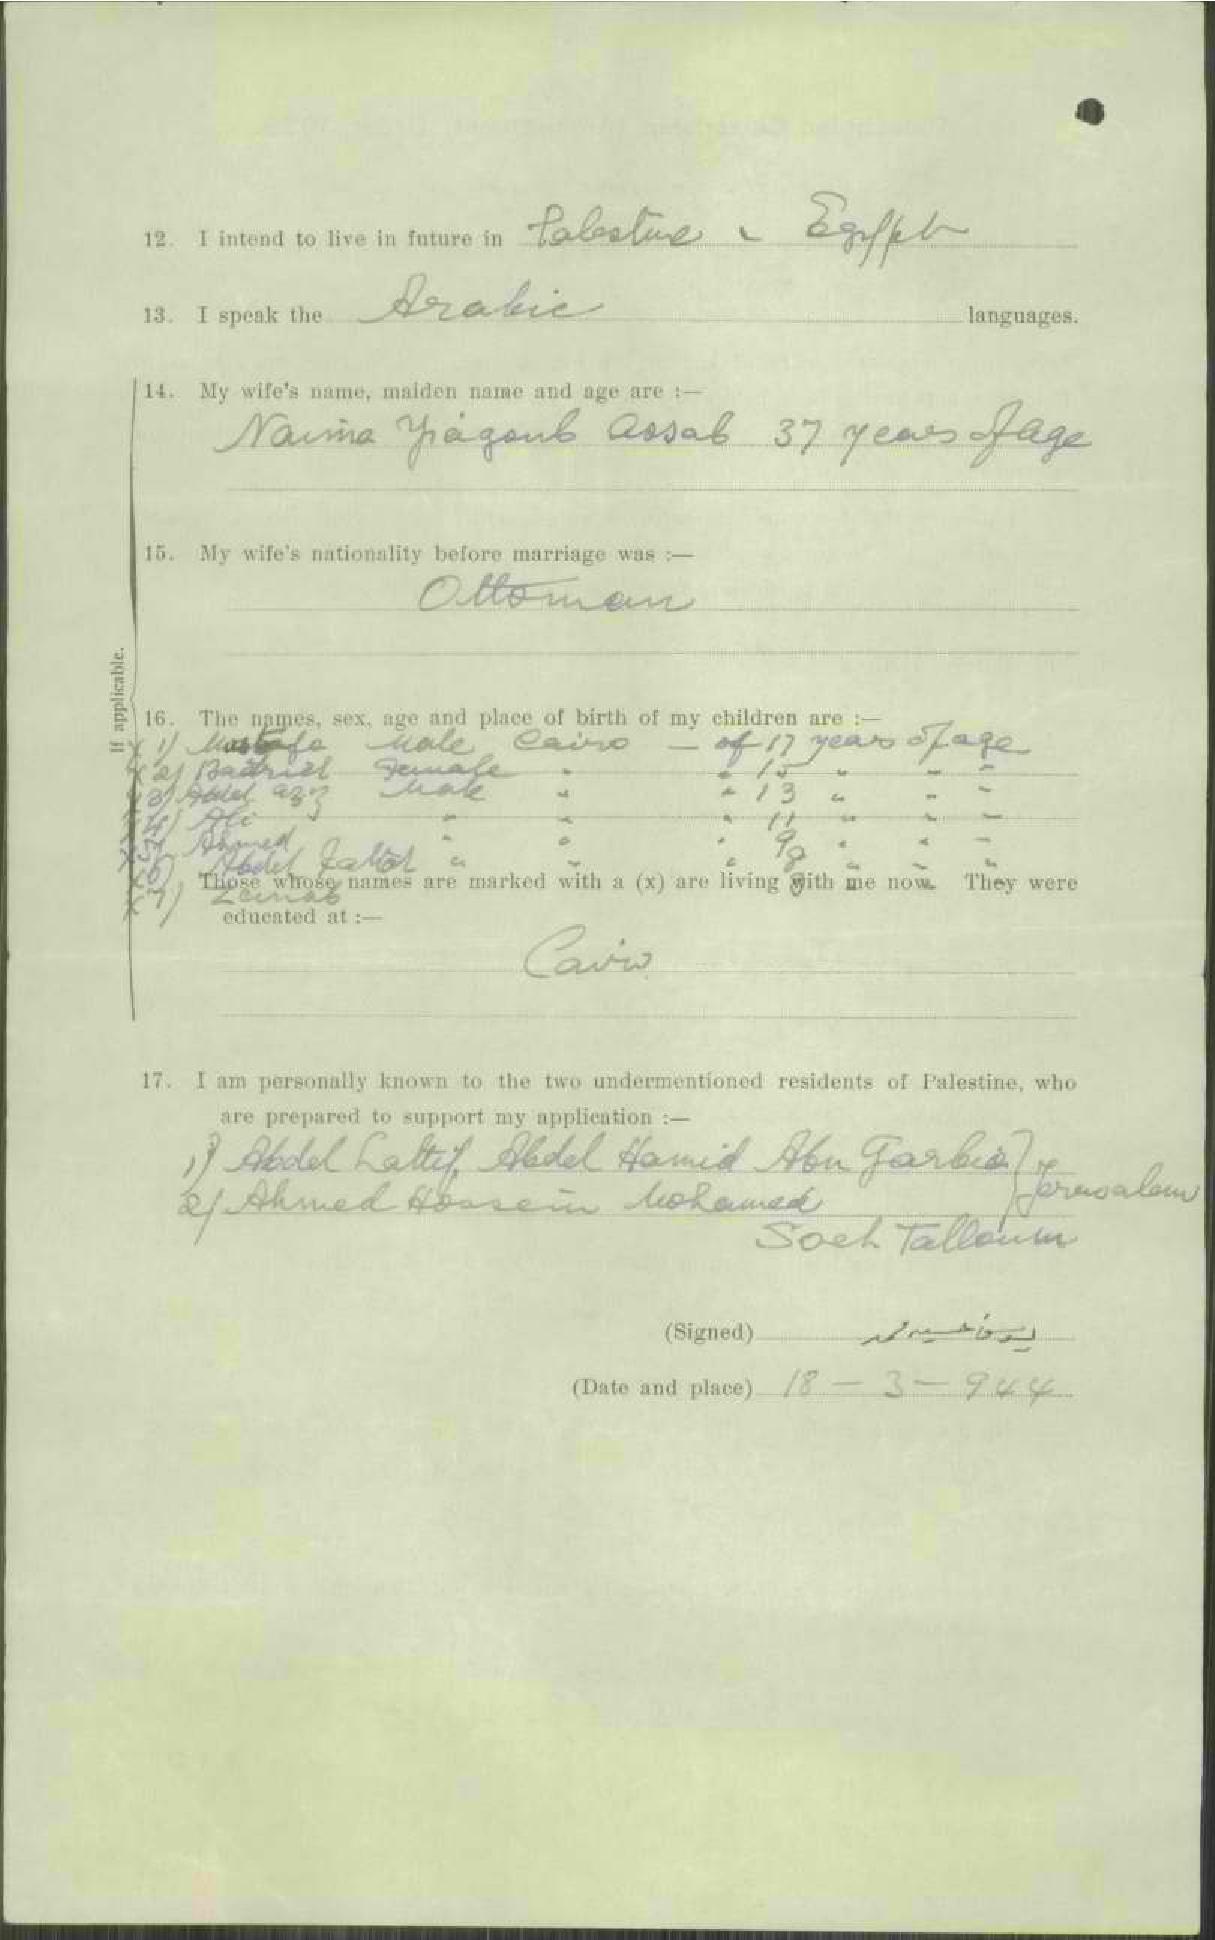 12. I intend to live in future in Palestine & Egypt
13. I speak the Arabic languages.
14. My wife's name, maiden name and age are :—
Naima Yiagoub Assab 37 years of age
15. My wife's nationality before marriage was :—
Ottoman
If applicable.
16. The names, sex, age and place of birth of my children are :—
x 1) Mustafa Male Cairo — of 17 years of age
x 2) Badrieh Female " " 15 " " "
x 3) Abdel aziz Male " " 13 " " "
x 4) Ali " " " 11 " " "
x 5) Ahmed " " " 9 " " "
x 6) Abdel " " " 8 " " "
Those whose names are marked with a (x) are living with me now. They were
x 7) Zeinab
educated at :—
Cairo
17. I am personally known to the two undermentioned residents of Palestine, who
are prepared to support my application :—
1) Abdel Lattif Abdel Hamid Abu Garbia
2) Ahmed Hossein Mohamed
Jerusalem
(Signed) يوسف حسين محمد
(Date and place) 18 — 3 — 944